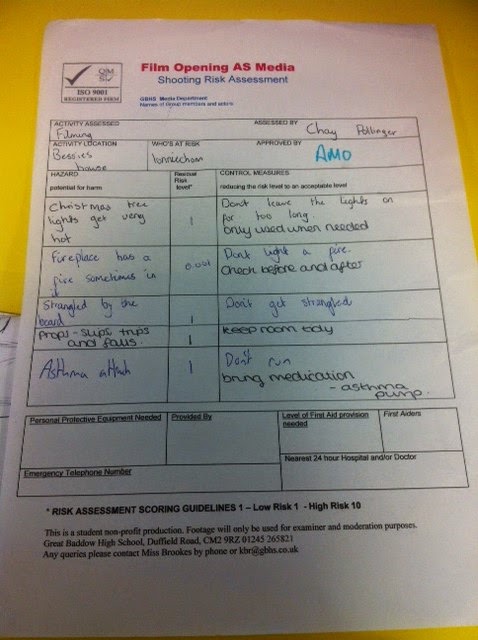 ISO 9001
REGISTERED FIRM
Film Opening AS Media
Shooting Risk Assessment
GBHS Media Department
Names of Group members and actors
ACTIVITY ASSESSED
Filming
ASSESSED BY
Chay Pollinger
ACTIVITY LOCATION
Bessies house
WHO'S AT RISK
APPROVED BY
AMO
HAZARD
potential for harm
Residual Risk level*
CONTROL MEASURES
reducing the risk level to an acceptable level
Christmas tree
lights get very
hot
1
Don't leave the lights on
for too long
only used when needed
Fireplace has a
fire sometimes in
0.001
Dont light a fire.
Check before and after
Strangled by the
1
Don't get strangled
Props - slips trips
and falls.
1
keep room tidy
Asthma attack
1
Don't run
bring medication
- asthma
pump.
Personal Protective Equipment Needed
Provided By
Level of First Aid provision needed
First Aiders
Nearest 24 hour Hospital and/or Doctor
Emergency Telephone Number
* RISK ASSESSMENT SCORING GUIDELINES 1 – Low Risk 1 - High Risk 10
This is a student non-profit production. Footage will only be used for examiner and moderation purposes.
Great Baddow High School, Duffield Road, CM2 9RZ 01245 265821
Any queries please contact Miss Brookes by phone or kbr@gbhs.co.uk